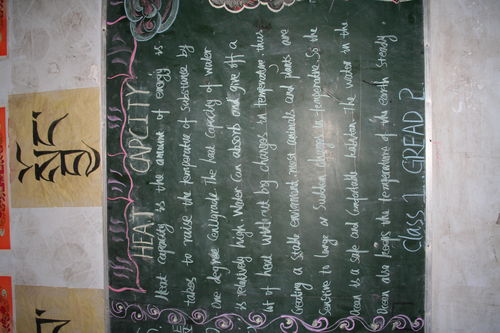 HEAT CAPCITY
Heat capacity is the amount of energy is
takes to raise the temperature of substance by
One degree Celigrade. The heat capacity of water
is relatively high. Water can absorb and give off a
lot of heat without big changes in temperature. thus
Creating a stable enviroment. most animals and plants are
Sensitive to large or sudden changes in temperature. So the
Ocean is a safe and Comfortable habitation. The water in the
Ocean also keeps the temperature of the earth steady.
Class 1. GREAD 2